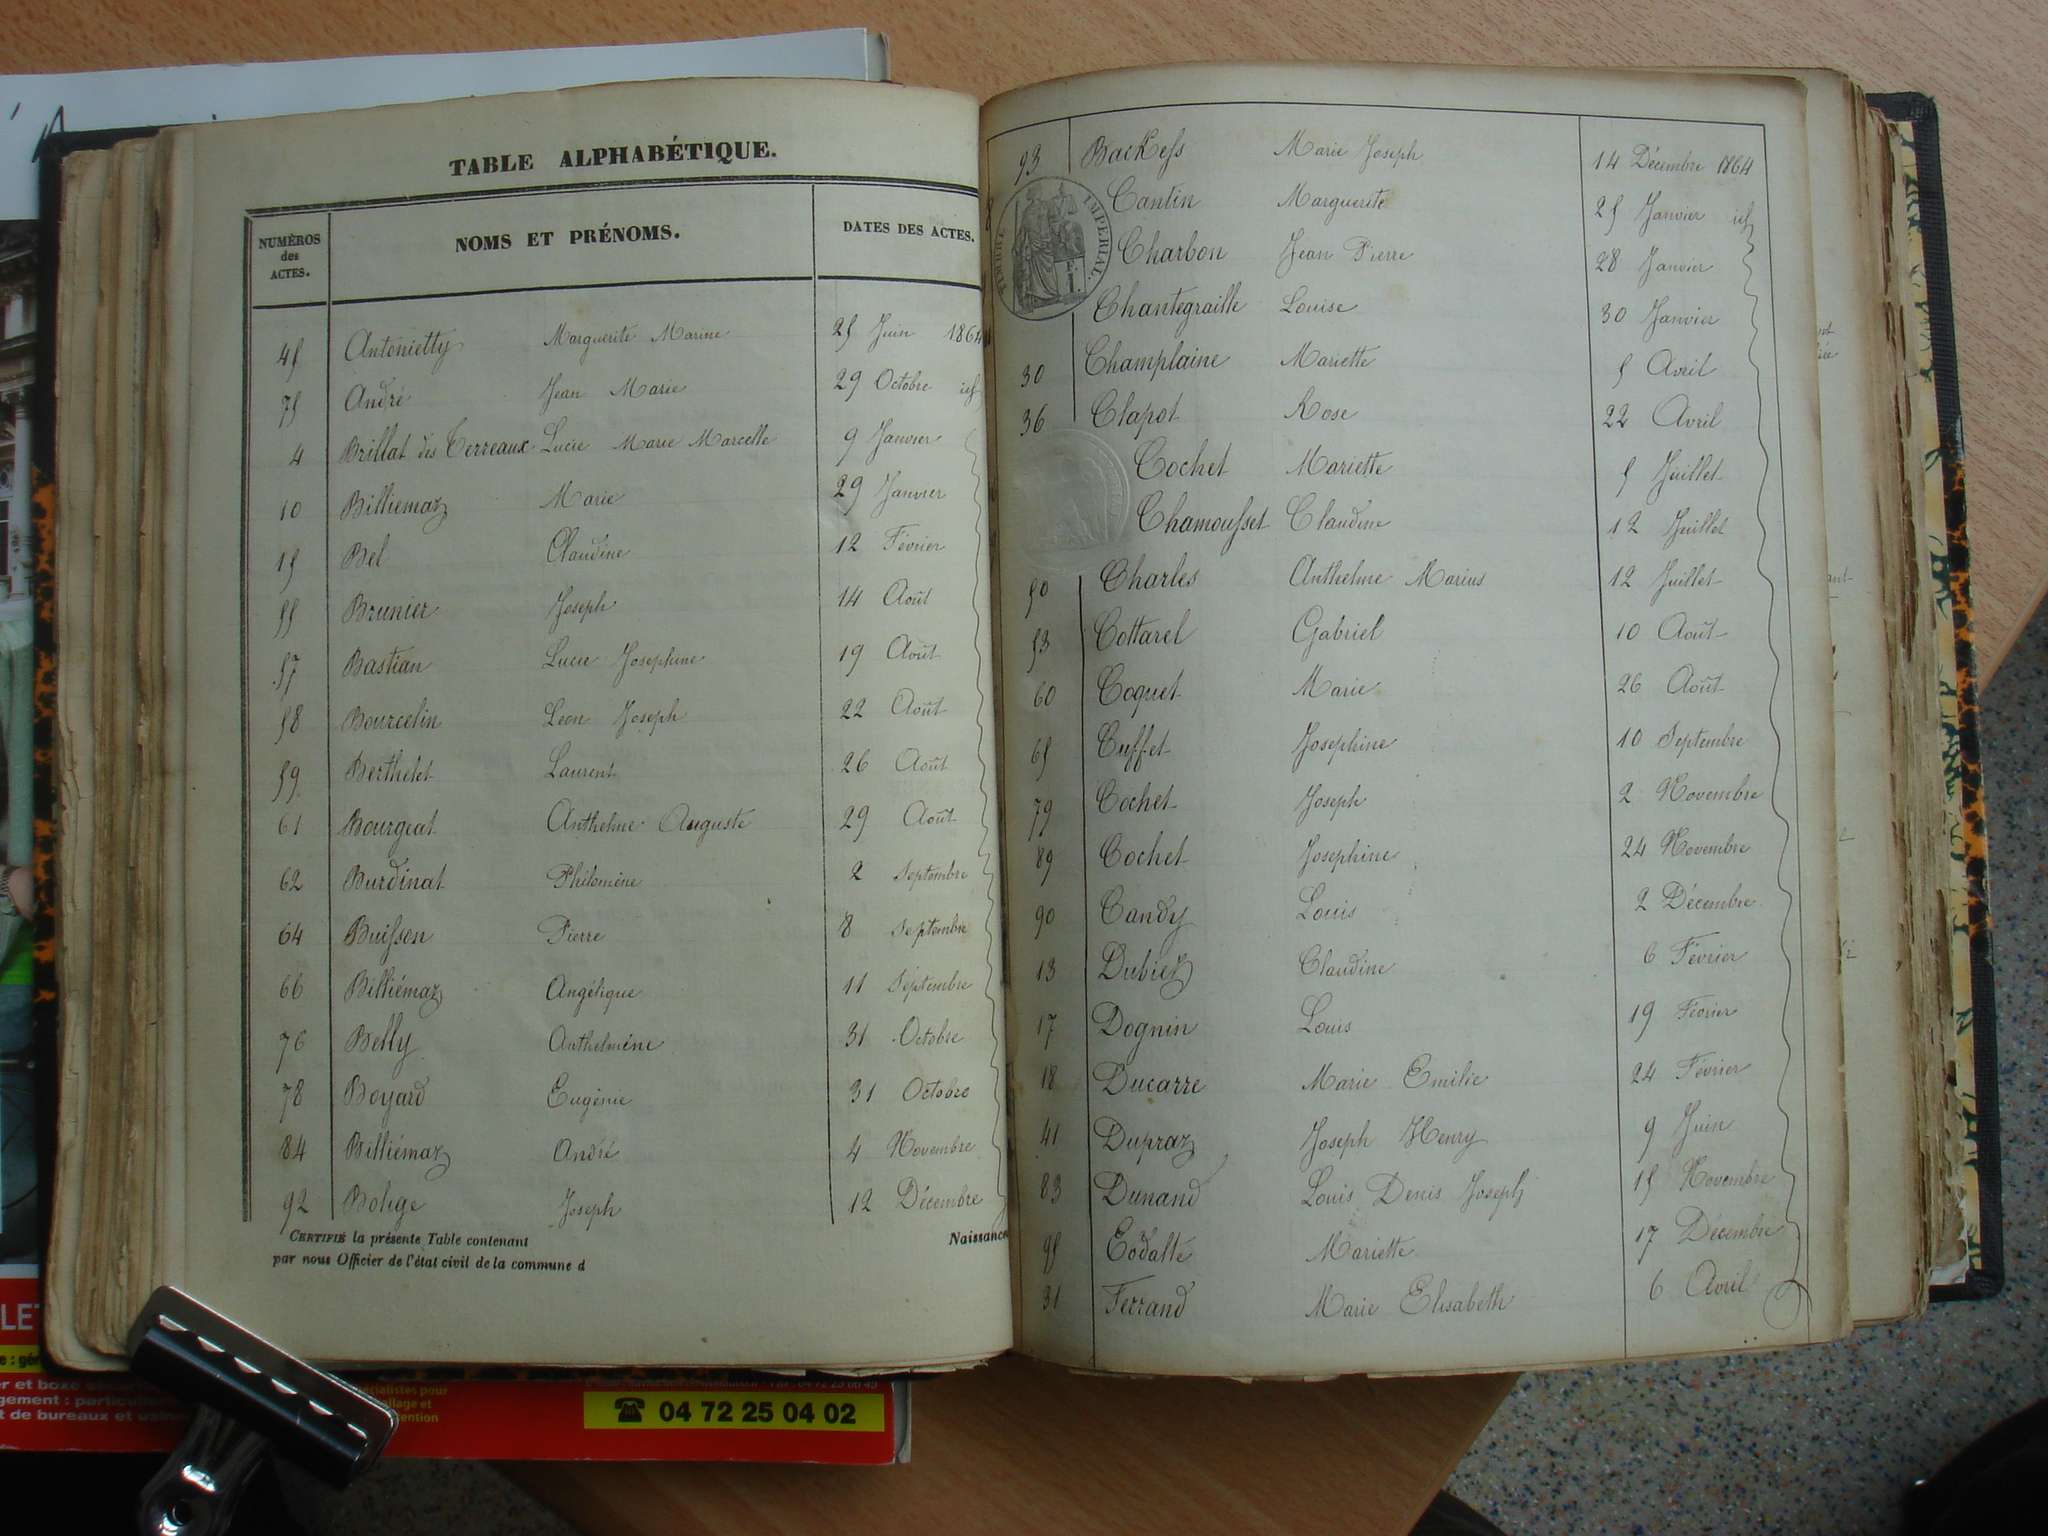 TABLE ALPHABÉTIQUE.
NUMÉROS des ACTES. NOMS ET PRÉNOMS. DATES DES ACTES.
45 Antonietty Marguerite Marine 25 Juin 1864
75 André Jean Marie 29 Octobre id
4 Brillat des Terreaux Lucie Marie Marcelle 9 Janvier
10 Billiemaz Marie 29 Janvier
15 Bel Claudine 12 Février
55 Brunier Joseph 14 Août
57 Bastian Lucie Josephine 19 Août
58 Bourcelin Léon Joseph 22 Août
59 Berthelet Laurent 26 Août
61 Bourgeat Anthelme Auguste 29 Août
62 Burdinat Philomène 2 Septembre
64 Buisson Pierre 8 Septembre
66 Billiémaz Angélique 11 Septembre
76 Belly Anthelmène 31 Octobre
78 Boyard Eugénie 31 Octobre
84 Billiémaz André 4 Novembre
92 Bolige Joseph 12 Décembre
CERTIFIÉ la présente Table contenant Naissance
par nous Officier de l'état civil de la commune d
93 Backess Marie Joseph 14 Décembre 1864
8 Cantin Marguerite 25 Janvier id
Charbon Jean Pierre 28 Janvier
Chantegraille Louise 30 Janvier
30 Champlaine Mariette 5 Avril
36 Clapot Rose 22 Avril
Cochet Mariette 5 Juillet
Chamousset Claudine 12 Juillet
50 Charles Anthelme Marius 12 Juillet
53 Cottarel Gabriel 10 Août
60 Coquet Marie 26 Août
65 Cuffet Josephine 10 Septembre
79 Cochet Joseph 2 Novembre
89 Cochet Josephine 24 Novembre
90 Candy Louis 2 Décembre
13 Dubiez Claudine 6 Février
17 Dognin Louis 19 Février
18 Ducarre Marie Emilie 24 Février
41 Dupraz Joseph Henry 9 Juin
83 Dunand Louis Denis Joseph 15 Novembre
95 Eodatte Mariette 17 Décembre
31 Ferrand Marie Elisabeth 6 Avril
TIMBRE IMPÉRIAL.
er et boxe
gement : particuli
t de bureaux et
spécialistes pour
04 72 25 04 02